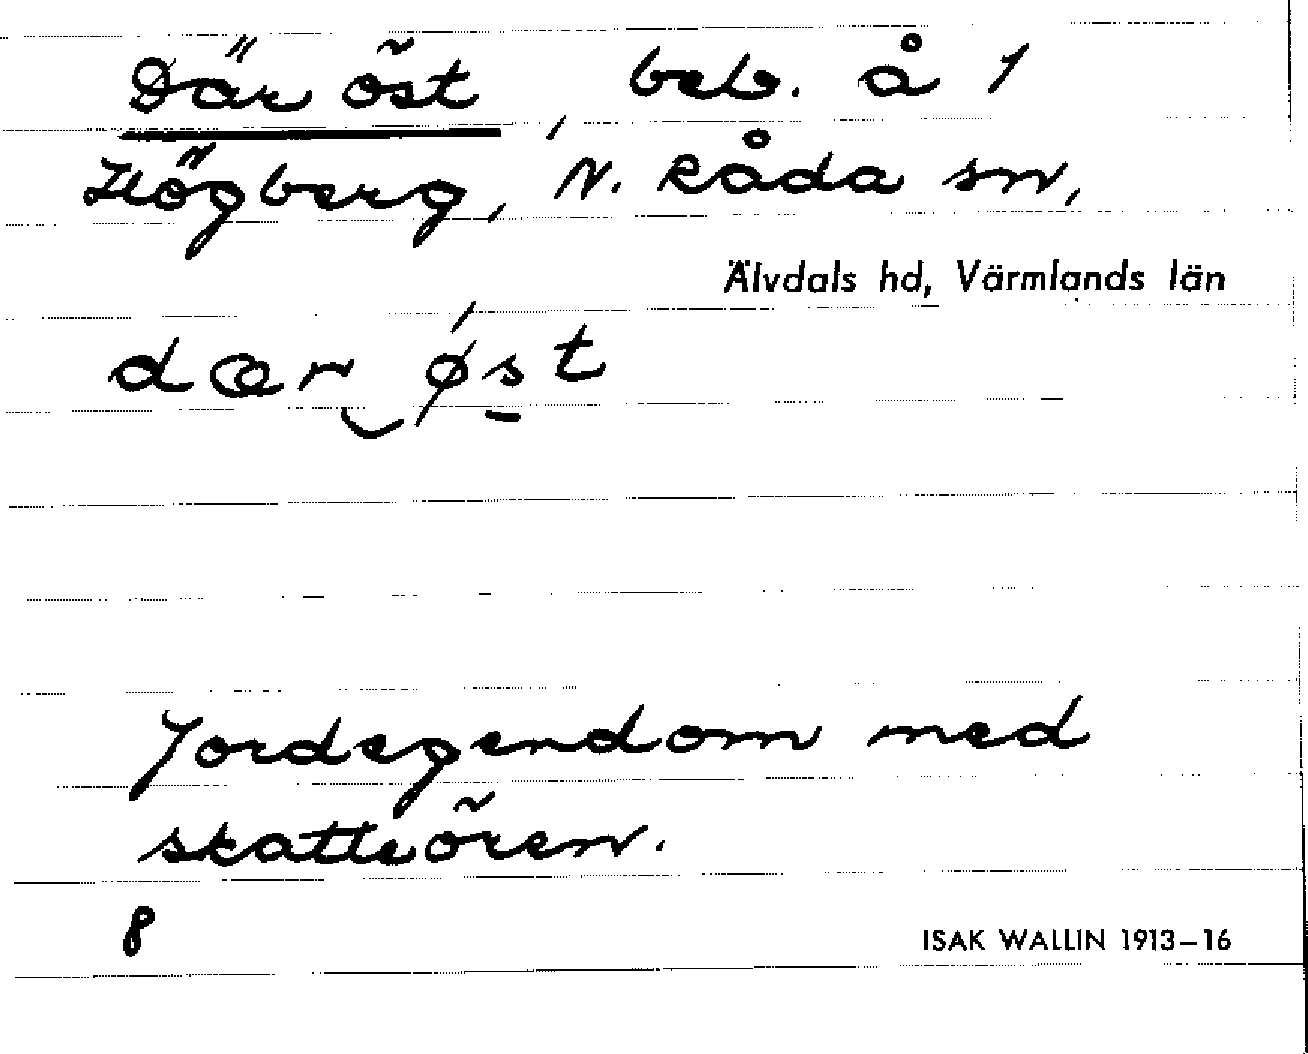 Där öst, beb. å 1
Högberg, N. Råda sn,
Älvdals hd, Värmlands län
dær‿ øst
Jordegendom med
skatteören.
8
ISAK WALLIN 1913–16